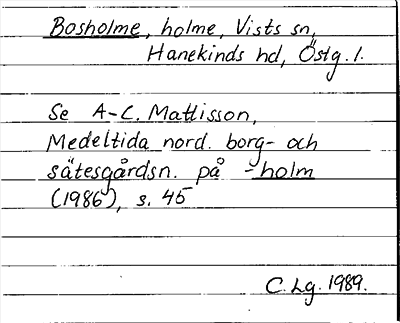 Bosholme, holme, Vists sn,
Hanekinds hd, Östg. l.
Se A-C. Mattisson,
Medeltida nord. borg- och
sätesgårdsn. på -holm
(1986), s. 45
C. Lg. 1989.